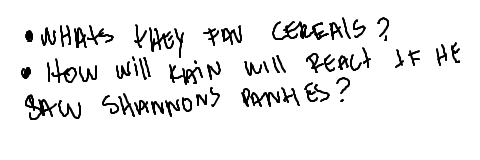 • WHATS THEY FAV CEREALS?
• HOW Will KAIN Will REACT IF HE
SAW SHANNONS PANTIES?